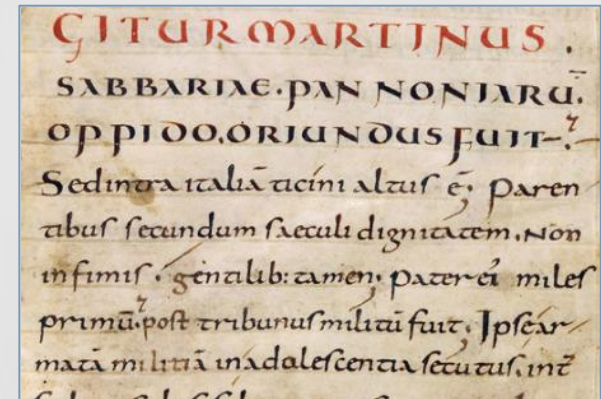 GITUR MARTINUS .
SABBARIAE·PANNONIARŪ.
OPPIDO.ORIUNDUS FUIT.
Sed intra italiā ticini altus ē; Paren
tibus secundum saeculi dignitatem. Non
infimis. gentilib: tamen; Pater ei miles
primū. post tribunus militū fuit; Ipse ar
matā militiā in adolescentia secutus. int